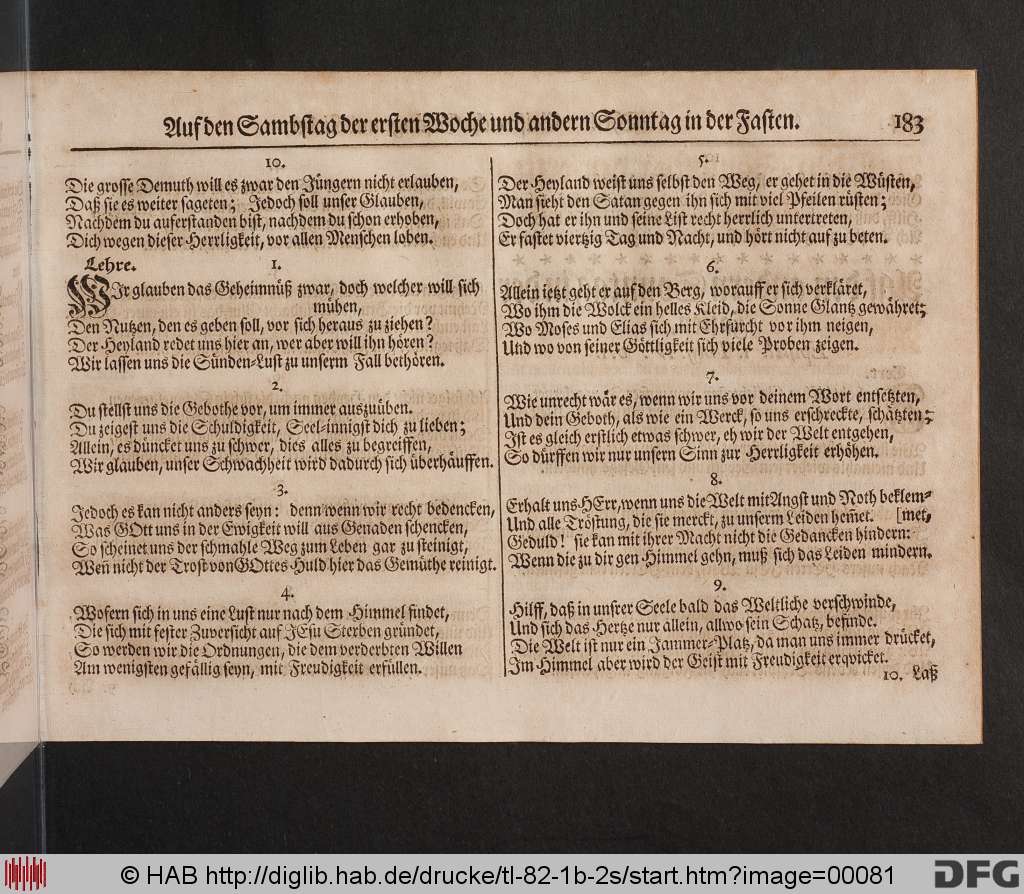 Auf den Sambstag der ersten Woche und andern Sonntag in der Fasten. 183
10.
Die grosse Demuth will es zwar den Jüngern nicht erlauben,
Daß sie es weiter sageten; Jedoch soll unser Glauben,
Nachdem du auferstanden bist, nachdem du schon erhoben,
Dich wegen dieser Herrligkeit, vor allen Menschen loben.
Lehre. 1.
WIr glauben das Geheimnüß zwar, doch welcher will sich
mühen,
Den Nutzen, den es geben soll, vor sich heraus zu ziehen?
Der Heyland redet uns hier an, wer aber will ihn hören?
Wir lassen uns die Sünden-Lust zu unserm Fall bethören.
2.
Du stellst uns die Gebothe vor, um immer auszuüben.
Du zeigest uns die Schuldigkeit, Seel-innigst dich zu lieben;
Allein, es düncket uns zu schwer, dies alles zu begreiffen,
Wir glauben, unser Schwachheit wird dadurch sich überhäuffen.
3.
Jedoch es kan nicht anders seyn: denn wenn wir recht bedencken,
Was GOtt uns in der Ewigkeit will aus Genaden schencken,
So scheinet uns der schmahle Weg zum Leben gar zu steinigt,
Weñ nicht der Trost von GOttes Huld hier das Gemüthe reinigt.
4.
Wofern sich in uns eine Lust nur nach dem Himmel findet,
Die sich mit fester Zuversicht auf JEsu Sterben gründet,
So werden wir die Ordnungen, die dem verderbten Willen
Am wenigsten gefällig seyn, mit Freudigkeit erfüllen.
5.
Der Heyland weist uns selbst den Weg, er gehet in die Wüsten,
Man sieht den Satan gegen ihn sich mit viel Pfeilen rüsten;
Doch hat er ihn und seine List recht herrlich untertreten,
Er fastet viertzig Tag und Nacht, und hört nicht auf zu beten.
6.
Allein ietzt geht er auf den Berg, worauff er sich verkläret,
Wo ihm die Wolck ein helles Kleid, die Sonne Glantz gewähret;
Wo Moses und Elias sich mit Ehrfurcht vor ihm neigen,
Und wo von seiner Göttligkeit sich viele Proben zeigen.
7.
Wie unrecht wär es, wenn wir uns vor deinem Wort entsetzten,
Und dein Geboth, als wie ein Werck, so uns erschreckte, schätzten;
Ist es gleich erstlich etwas schwer, eh wir der Welt entgehen,
So dürffen wir nur unsern Sinn zur Herrligkeit erhöhen.
8.
Erhalt uns HErr, wenn uns die Welt mit Angst und Noth beklem-
Und alle Tröstung, die sie merckt, zu unserm Leiden hem̃et. [met,
Geduld! sie kan mit ihrer Macht nicht die Gedancken hindern:
Wenn die zu dir gen Himmel gehn, muß sich das Leiden mindern.
9.
Hilff, daß in unsrer Seele bald das Weltliche verschwinde,
Und sich das Hertze nur allein, allwo sein Schatz, befinde.
Die Welt ist nur ein Jammer-Platz, da man uns immer drücket,
Im Himmel aber wird der Geist mit Freudigkeit erqvicket.
10. Laß
© HAB http://diglib.hab.de/drucke/tl-82-1b-2s/start.htm?image=00081
DFG